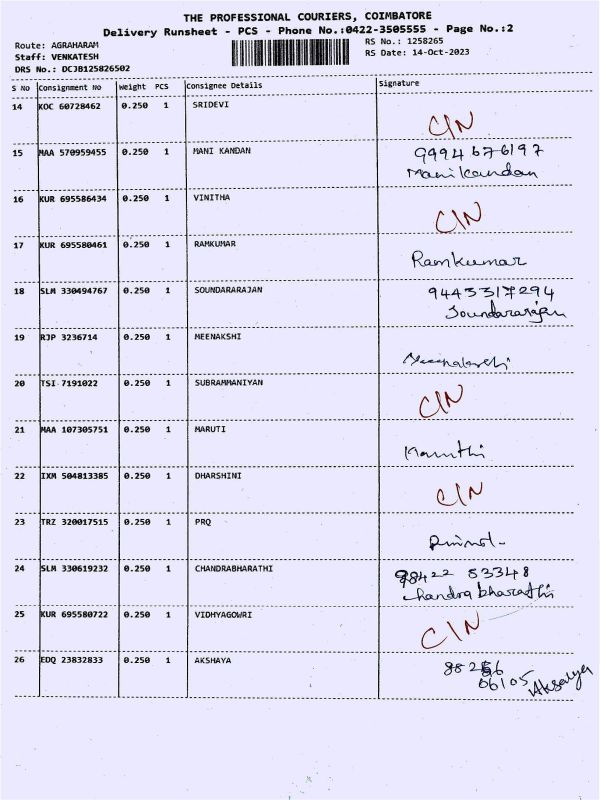 THE PROFESSIONAL COURIERS, COIMBATORE
Delivery Runsheet - PCS - Phone No.:0422-3505555 - Page No.:2
Route: AGRAHARAM
Staff: VENKATESH
DRS No.: DCJB125826502
RS No.: 1258265
RS Date: 14-Oct-2023
S No Consignment No Weight PCS Consignee Details Signature
14 KOC 60728462 0.250 1 SRIDEVI
CIN
15 MAA 570959455 0.250 1 MANI KANDAN 9994676197
Manikandan
16 KUR 695586434 0.250 1 VINITHA
CIN
17 KUR 695580461 0.250 1 RAMKUMAR
Ramkumar
18 SLM 330494767 0.250 1 SOUNDARARAJAN 9443317294
Soundararajan
19 RJP 3236714 0.250 1 MEENAKSHI
20 TSI 7191022 0.250 1 SUBRAMMANIYAN
CIN
21 MAA 107305751 0.250 1 MARUTI
Maruthi
22 IXM 504813385 0.250 1 DHARSHINI
CIN
23 TRZ 320017515 0.250 1 PRQ
24 SLM 330619232 0.250 1 CHANDRABHARATHI 98422 53348
Chandra bharathi
25 KUR 695580722 0.250 1 VIDHYAGOWRI
CIN
26 EDQ 23832833 0.250 1 AKSHAYA
06105